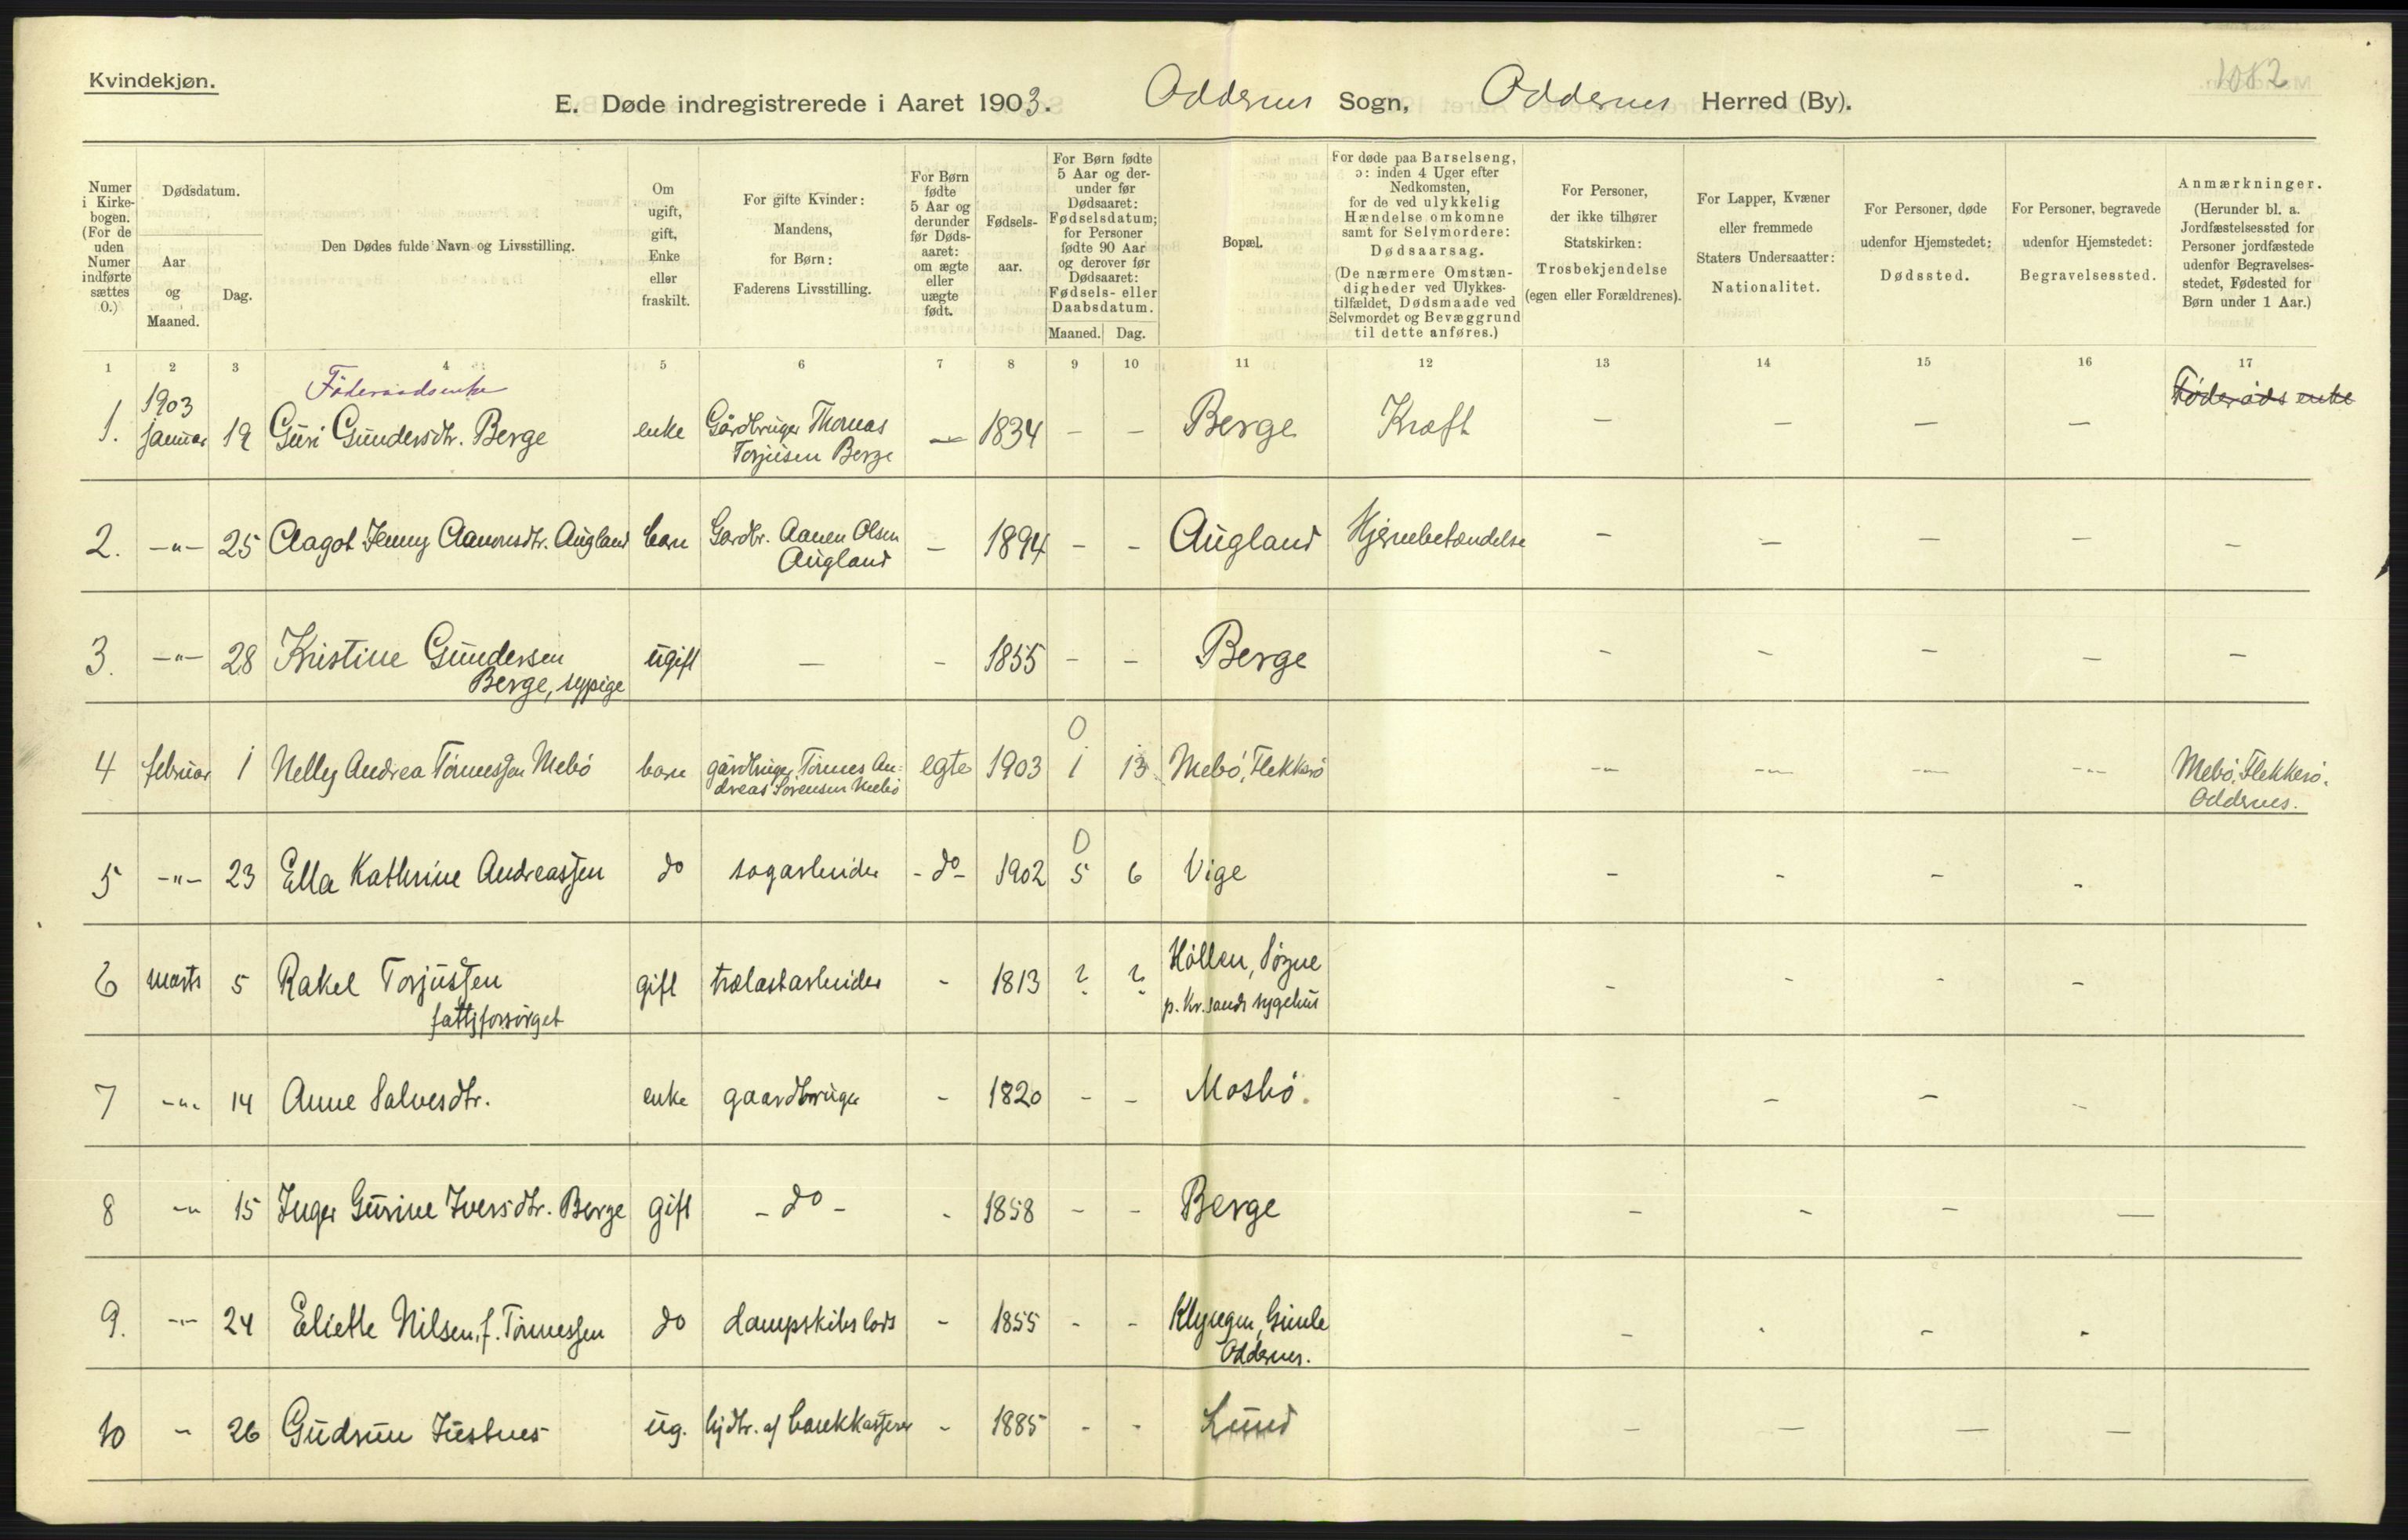 Kvindekjøn.
1082
E. Døde indregistrerede i Aaret 1903. Oddernes Sogn, Oddernes Herred (By).
Numer i Kirke-bogen. (For de uden Numer indførte sættes 0.)
Dødsdatum.
Aar og Maaned.
Dag.
Den Dødes fulde Navn og Livsstilling.
Om ugift, gift, Enke eller fraskilt.
For gifte Kvinder: Mandens, for Børn: Faderens Livsstilling.
For Børn fødte 5 Aar og derunder før Døds-aaret: om ægte eller uægte født.
Fødsels-aar.
For Børn fødte 5 Aar og der-under før Dødsaaret: Fødselsdatum; for Personer fødte 90 Aar og derover før Dødsaaret: Fødsels- eller Daabsdatum.
Maaned. Dag.
Bopæl.
For døde paa Barselseng, ɔ: inden 4 Uger efter Nedkomsten, for de ved ulykkelig Hændelse omkomne samt for Selvmordere: Dødsaarsag. (De nærmere Omstæn-digheder ved Ulykkes-tilfældet, Dødsmaade ved Selvmordet og Bevæggrund til dette anføres.)
For Personer, der ikke tilhører Statskirken: Trosbekjendelse (egen eller Forældrenes).
For Lapper, Kvæner eller fremmede Staters Undersaatter: Nationalitet.
For Personer, døde udenfor Hjemstedet: Dødssted.
For Personer, begravede udenfor Hjemstedet: Begravelsessted.
Anmærkninger. (Herunder bl. a. Jordfæstelsessted for Personer jordfæstede udenfor Begravelses-stedet, Fødested for Børn under 1 Aar.)
1 2 3 4 5 6 7 8 9 10 11 12 13 14 15 16 17
Föderaadsenke
Föderåds enke
1903
1. januar 19 Guri Gundersdtr. Berge enke Gårdbruger Thomas — 1834 – – Berge Kræft – – – –
Torjusen Berge
2. –"– 25 Aagot Jenny Aanensdtr. Augland barn Gardbr. Aanen Olsen – 1894 – – Augland Hjernebetændelse – – – – –
Augland
3. –"– 28 Kristine Gundersen ugift – – 1855 – – Berge – – – – –
Berge, sypige
0
4 februar 1 Nelly Andrea Tönnessen Mebö barn gårdbruger Tönnes An- egte 1903 1 13 Mebö, Flekkerö – – – – Mebö, Flekkerö.
dreas Sörensen Mebö
Oddernes.
0
5 –"– 23 Ella Kathrine Andreassen do sagarbeider – do – 1902 5 6 Vige – – – –
6 marts 5 Rakel Torjussen gift trælastarbeider – 1813 ? ? Höllen, Søgne – – – –
fattigforsörget
p. Kr.sands sygehus
7 –"– 14 Anne Salvesdtr. enke gaardbruger – 1820 – – Mosbö. – – – –
8 –"– 15 Inger Gurine Iversdtr. Berge gift – do – – 1858 – – Berge – – – –
9. –"– 24 Eliette Nilsen, f. Tönnessen do dampskibslods – 1855 – – Klyngen, Gimle – – – –
Oddernes.
10 – 26 Gudrun Justnes ug. hjdtr. af bankkasserer – 1885 – – Lund – – – –